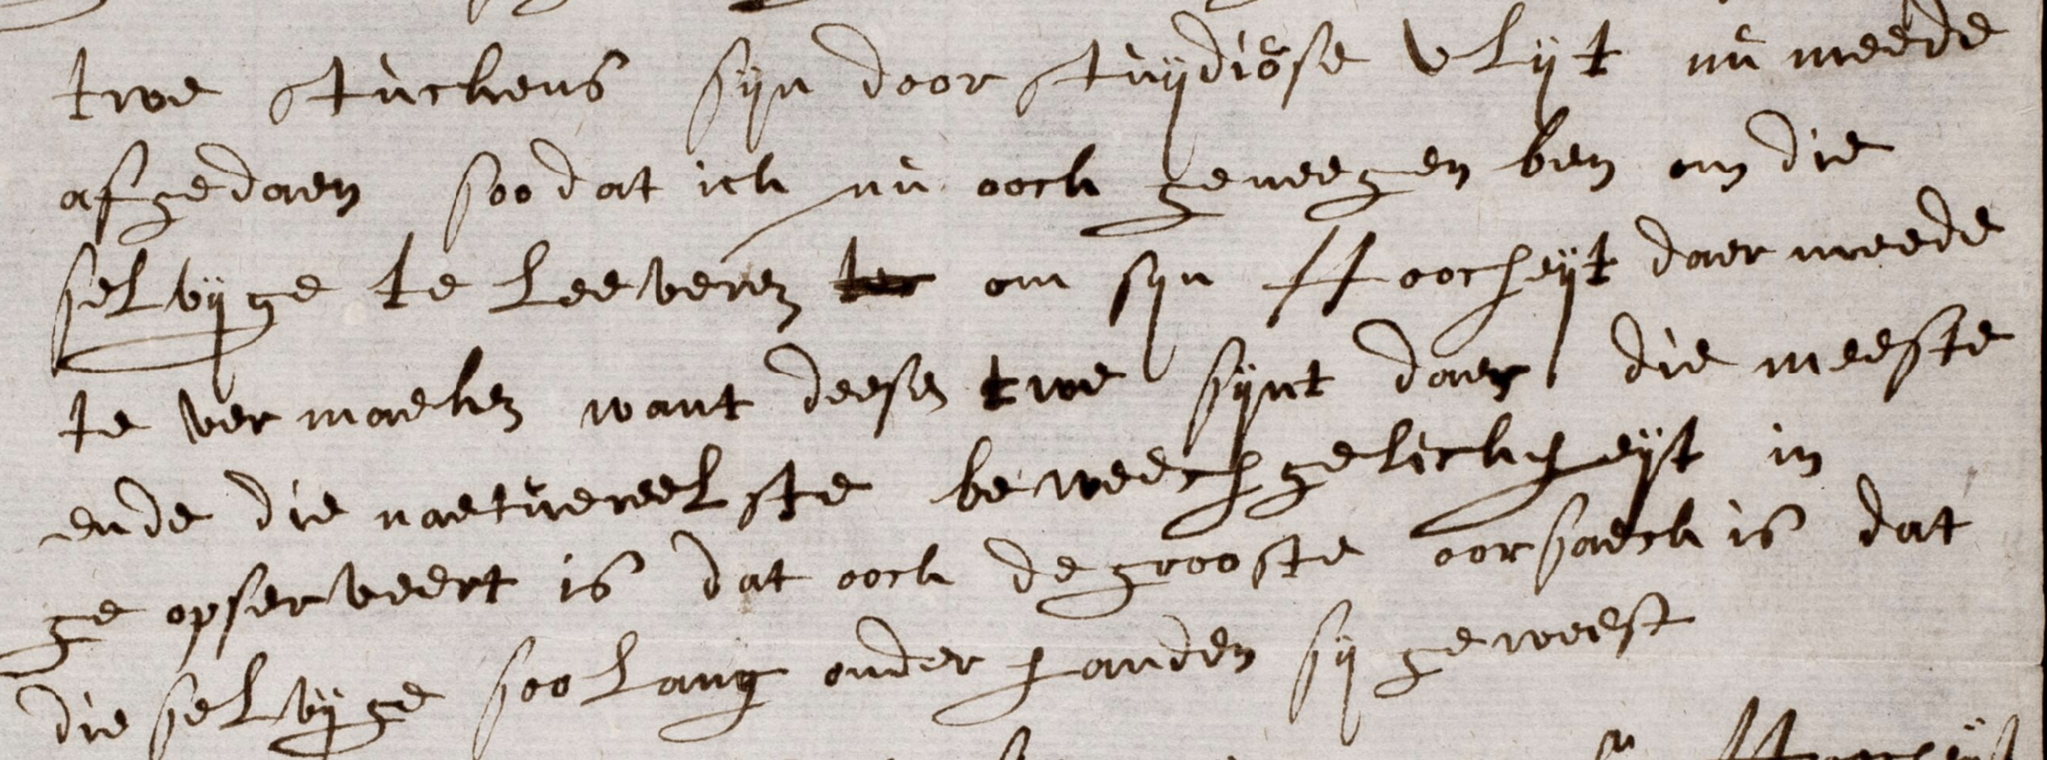 twe stuckens sijn door stuijdiose vlijt nu meede
afgedaen soodat ick nu oock geneegen ben om die
selvijge te leeveren om sijn Hoocheijt daer meede
te vermaeken want deesen twe sijnt daer die meeste
ende die naetuereelste beweechgelickheijt in
geopserveert is dat oock de grooste oorsaeck is dat
die selvijge soo lang onder handen sij geweest